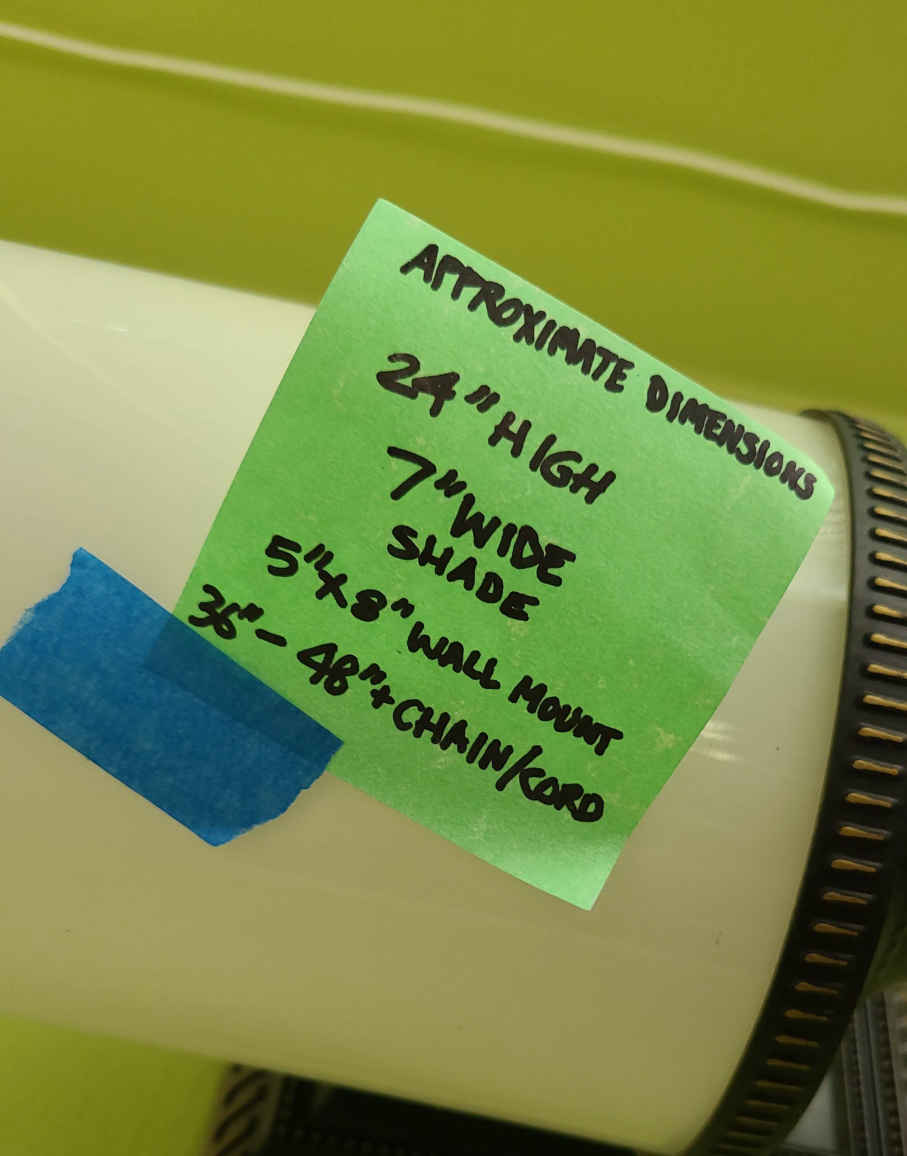 APPROXIMATE DIMENSIONS
24" HIGH
7" WIDE
SHADE
5"x8" WALL MOUNT
36"-48"+ CHAIN/CORD